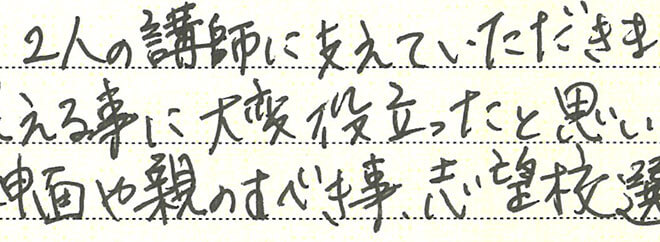 2人の講師に支えていただきま
える事に大変役立ったと思い
神面や親のすべき事、志望校選